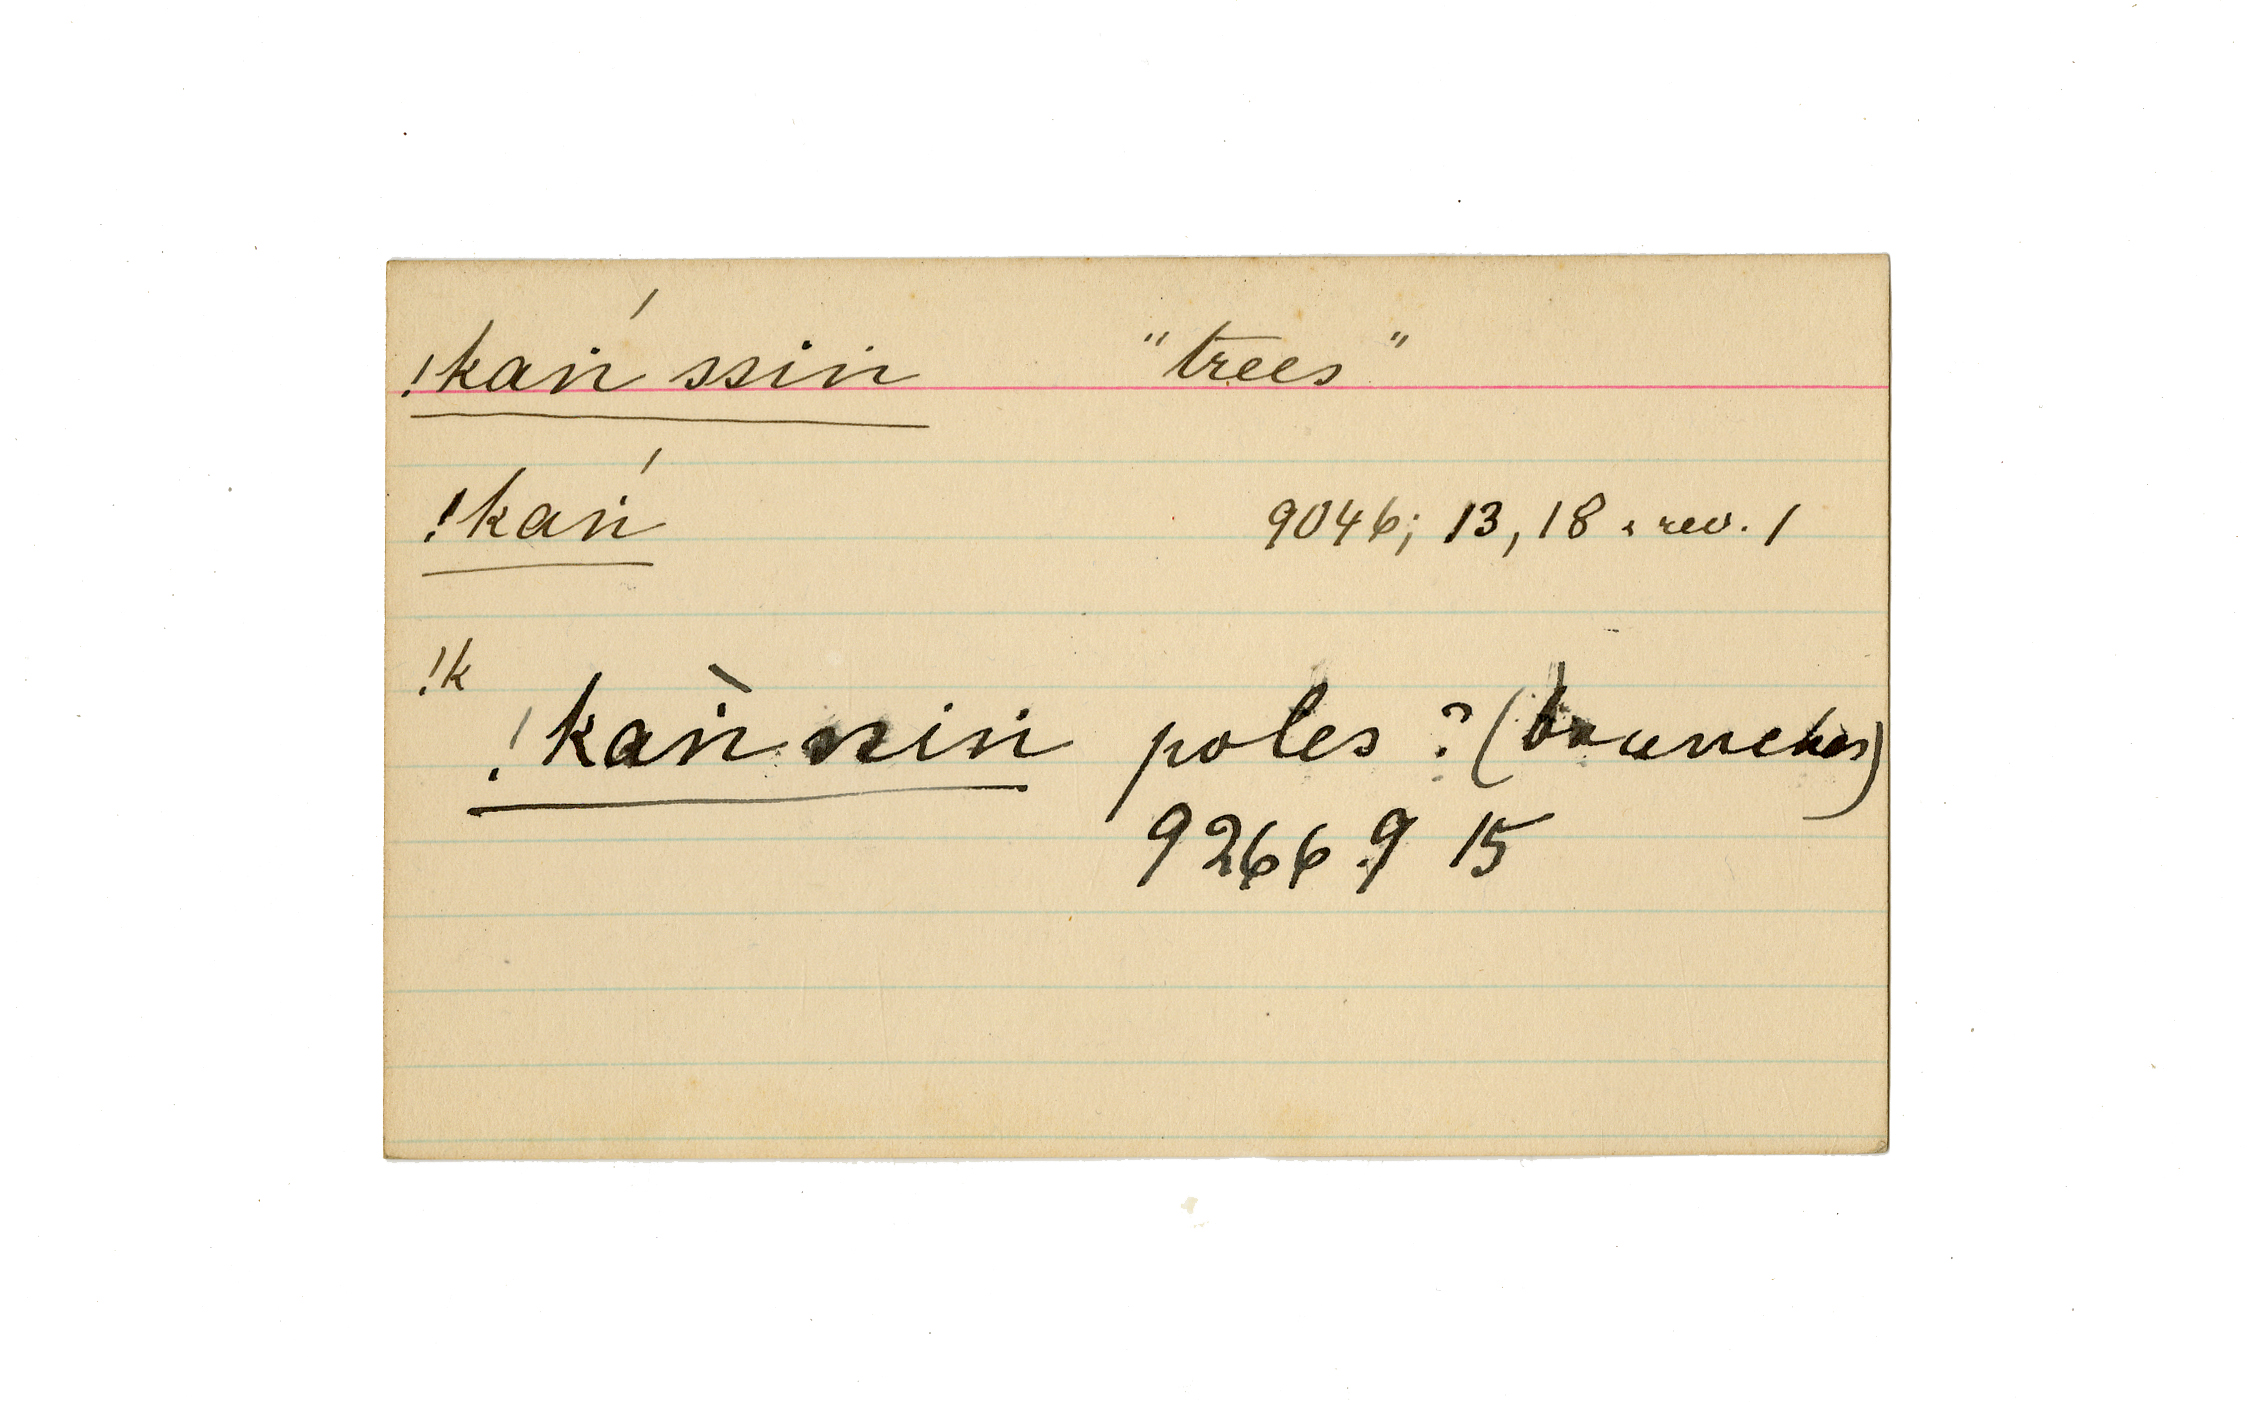 !kaṅ́ ssiṅ "trees"
!kaṅ́ 9046; 13, 18 & rev. 1
!k
!kaṅ̀ ssiṅ poles ? (branches)
9266 9 15